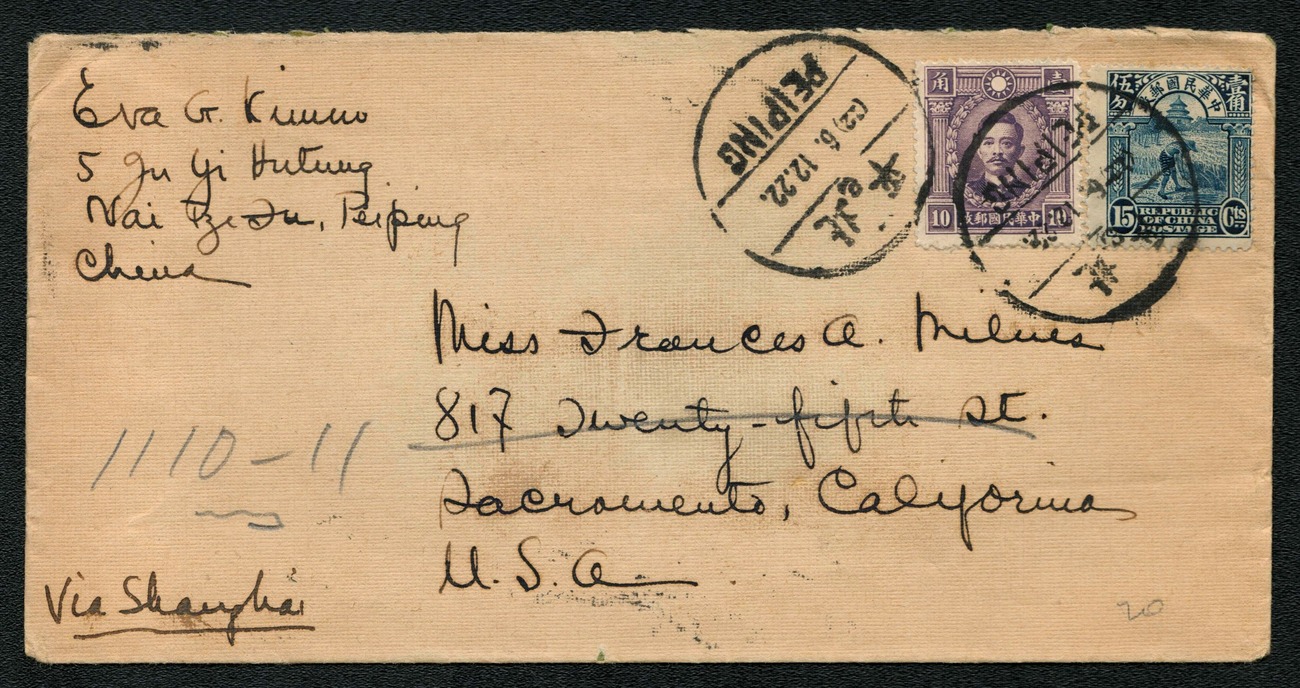 Eva G.
5 Ju Yi Hutung
Nai Tze Fu, Peiping
China
PEIPING
(22) 6. 12. 22.
北
壹 角
10 中華民國郵政 10
PEIPING
北
伍分 中華民國郵政 壹角
15 REPUBLIC OF CHINA POSTAGE Cts
Miss Frances A. Milnes
817 Twenty-fifth St.
Sacramento, California
U.S.A
1110-11
Via Shanghai
20